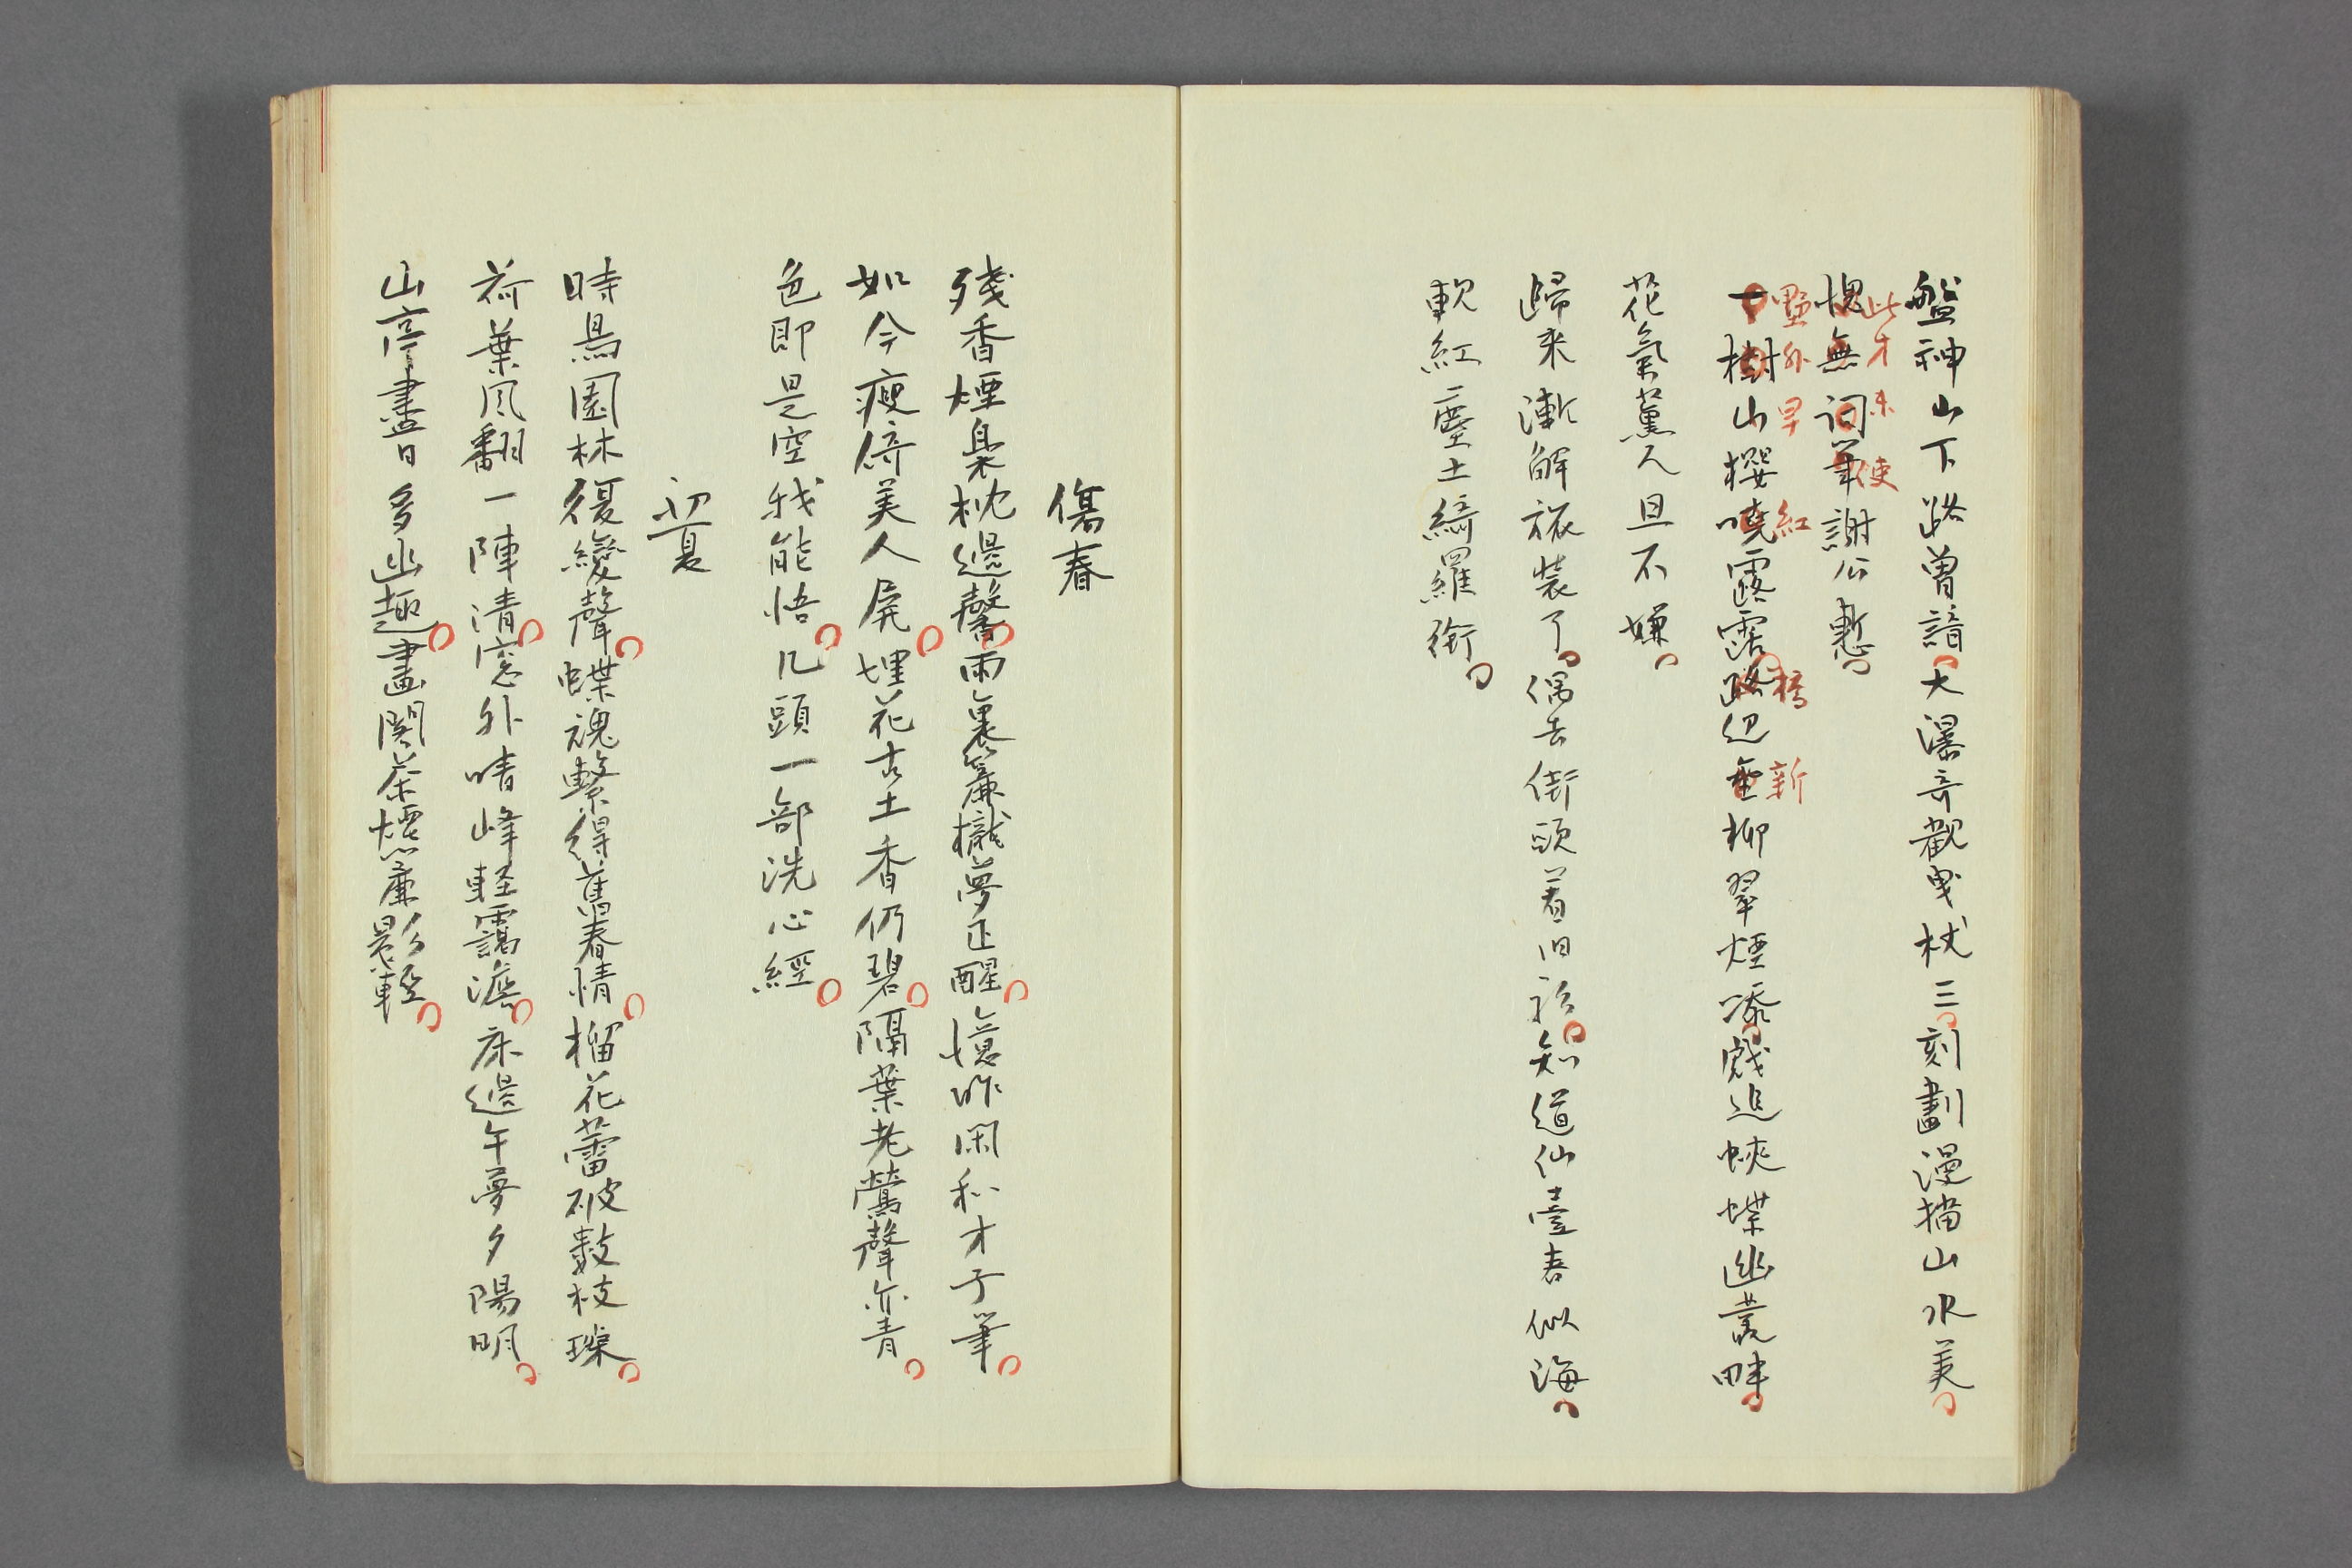 盤神山下路曽諳大瀑奇觀曳杖三刻劃漫描山水美
此才未使
愧無詞筆謝公慙
野外早紅橋新
一樹山櫻曉露露路辺垂柳翠煙添戯追蛺蝶幽叢畔
花氣薰人且不嫌
歸来漸解旅装了偶去街頭着旧衫知道仙臺春似海
軟紅塵土綺羅銜
傷春
殘香煙裊枕邊馨雨裏簾櫳夢正醒憶昨閑私才子筆
如今瘦倚美人屏埋花古土香仍碧隔葉老鶯聲亦青
色即是空我能悟几頭一部洗心經
初夏
時鳥園林復變聲蝶魂繫得舊春情榴花蕾破數枝璨
荷葉風翻一陣清窓外晴峰軽靄澹床邊午夢夕陽明
山亭盡日多幽趣畫閣茶煙簾影輕